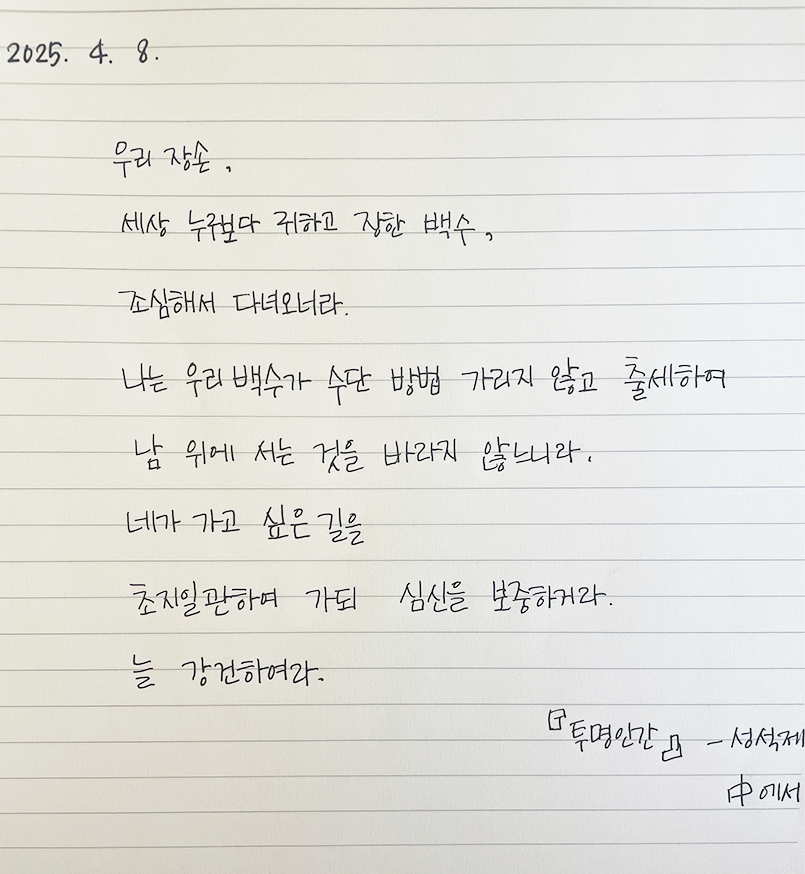 2025. 4. 8.
우리 장손,
세상 누구보다 귀하고 장한 백수,
조심해서 다녀오너라.
나는 우리 백수가 수단 방법 가리지 않고 출세하여
남 위에 서는 것을 바라지 않느니라.
네가 가고 싶은 길을
초지일관하여 가되 심신을 보중하거라.
늘 강건하여라.
『투명인간』 - 성석제
中에서